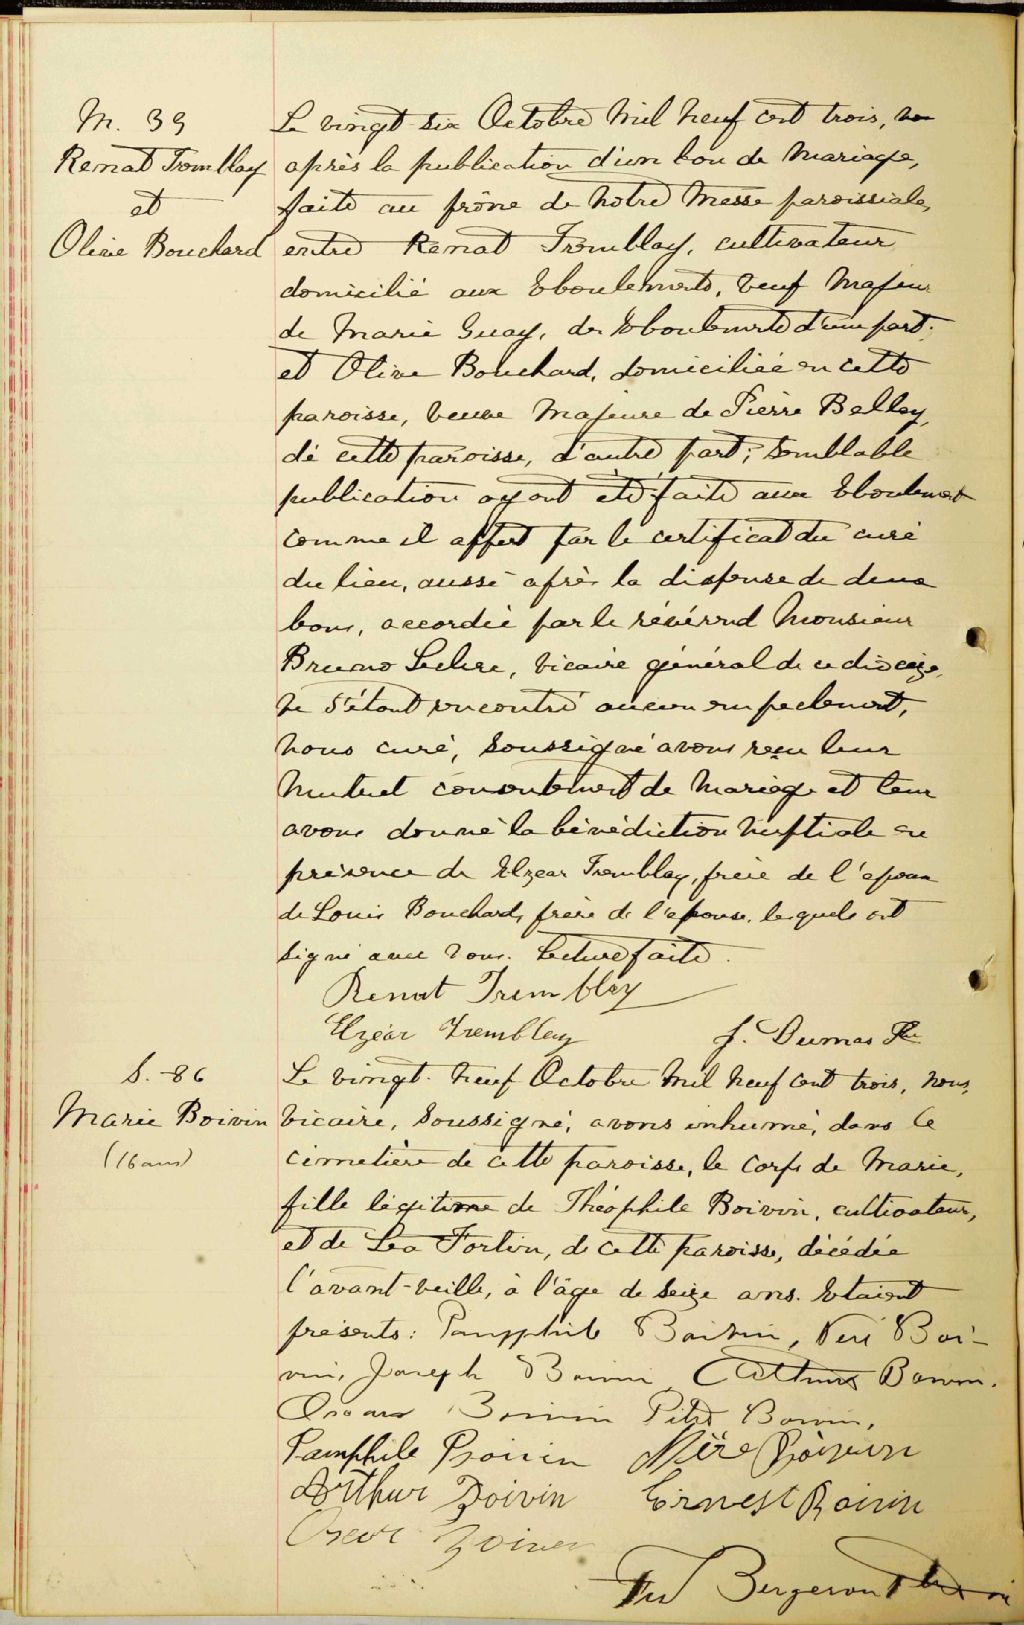 M. 39
Renat Tremblay
et
Olive Bouchard
Le vingt-six Octobre mil neuf cent trois,
après la publication d'un ban de mariage,
faite au prône de notre Messe paroissiale,
entre Renat Tremblay, cultivateur
domicilié aux Eboulements, veuf majeur
de Marie Guay, des Eboulements d'une part;
et Olive Bouchard, domiciliée en cette
paroisse, veuve majeure de Pierre Belley,
de cette paroisse, d'autre part; semblable
publication ayant été faite aux Eboulements
comme il appert par le certificat du curé
du lieu, aussi après la dispense de deux
bans, accordée par le révérend Monsieur
Bruno Leclerc, vicaire général de ce diocèse,
ne s'étant rencontré aucun empechement,
nous curé, soussigné avons reçu leur
mutuel consentement de mariage et leur
avons donné la bénédiction nuptiale en
présence de Elzear Tremblay, frère de l'epoux
de Louis Bouchard, frère de l'epouse, lesquels ont
signé avec nous. Lecture faite.
Renat Tremblay
Elzéar Tremblay J. Dumas Ptre
S. 86
Marie Boivin
(16 ans)
Le vingt-neuf Octobre mil neuf cent trois, nous,
vicaire, soussigné, avons inhumé, dans le
cimetière de cette paroisse, le corps de Marie,
fille légitime de Théophile Boivin, cultivateur,
et de Léa Fortin, de cette paroisse, décédée
l'avant-veille, à l'âge de seize ans. Etaient
présents: Pamphile Boivin, Néré Boi-
vin, Joseph Boivin Arthur Boivin.
Oscar Boivin Pitre Boivin,
Pamphile Boivin Boivin
Arthur Boivin Ernest Boivin
Oscar Boivin
Bergeron Ptre